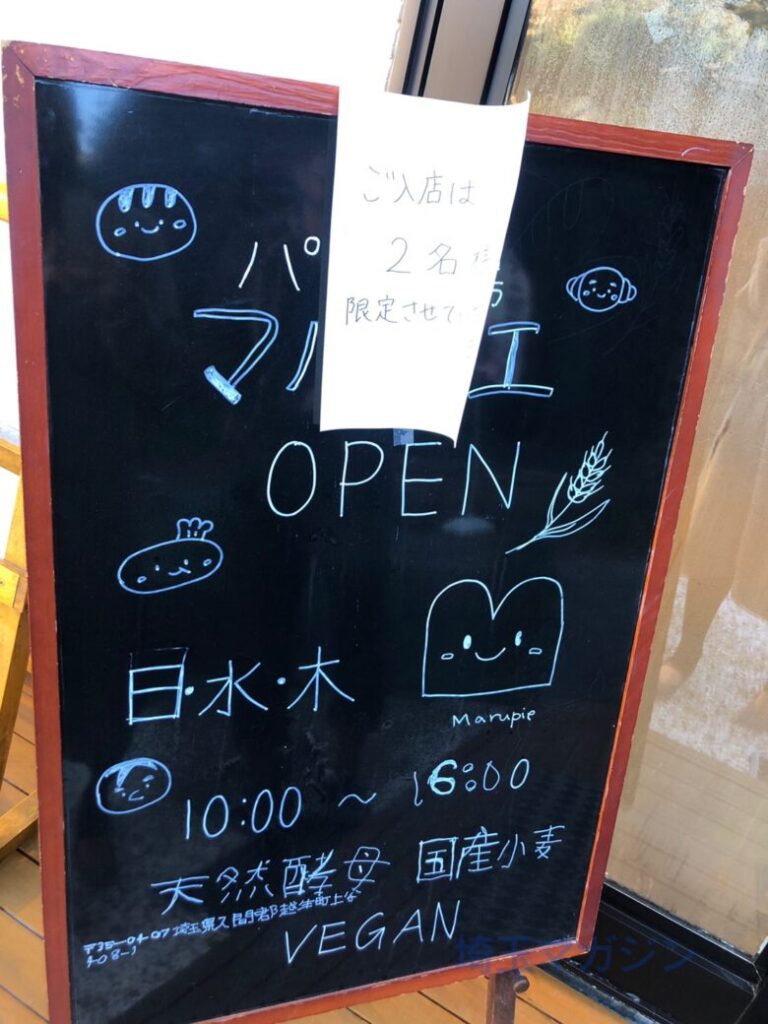 ご入店は
2名様
限定させて
パ
マル エ
OPEN
日・水・木
Marupie
10:00 ～ 16:00
天然酵母 国産小麦
埼玉県入間郡越生町上谷
408-1
VEGAN
埼玉マガジン